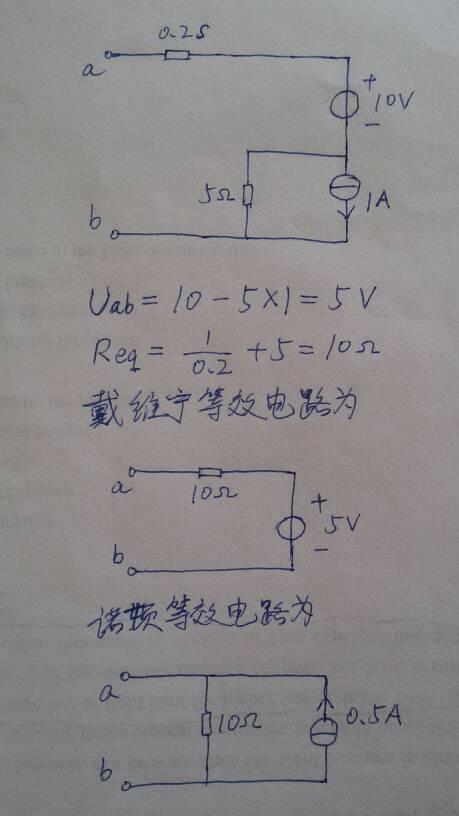 0.2S
a
+
10V
-
5Ω
1A
b
Uab = 10 - 5×1 = 5V
Req = 1/0.2 + 5 = 10Ω
戴维宁等效电路为
a
10Ω
+
5V
-
b
诺顿等效电路为
a
10Ω
0.5A
b